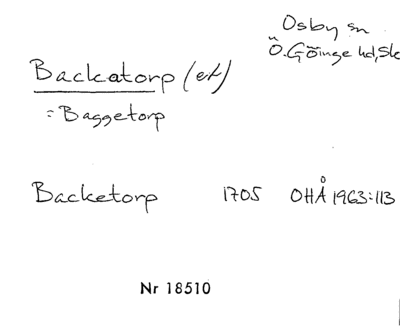 Osby sn
Ö. Göinge hd, Sk
Backatorp (et)
= Baggetorp
Backetorp 1705 OHÅ 1963:113
Nr 18510